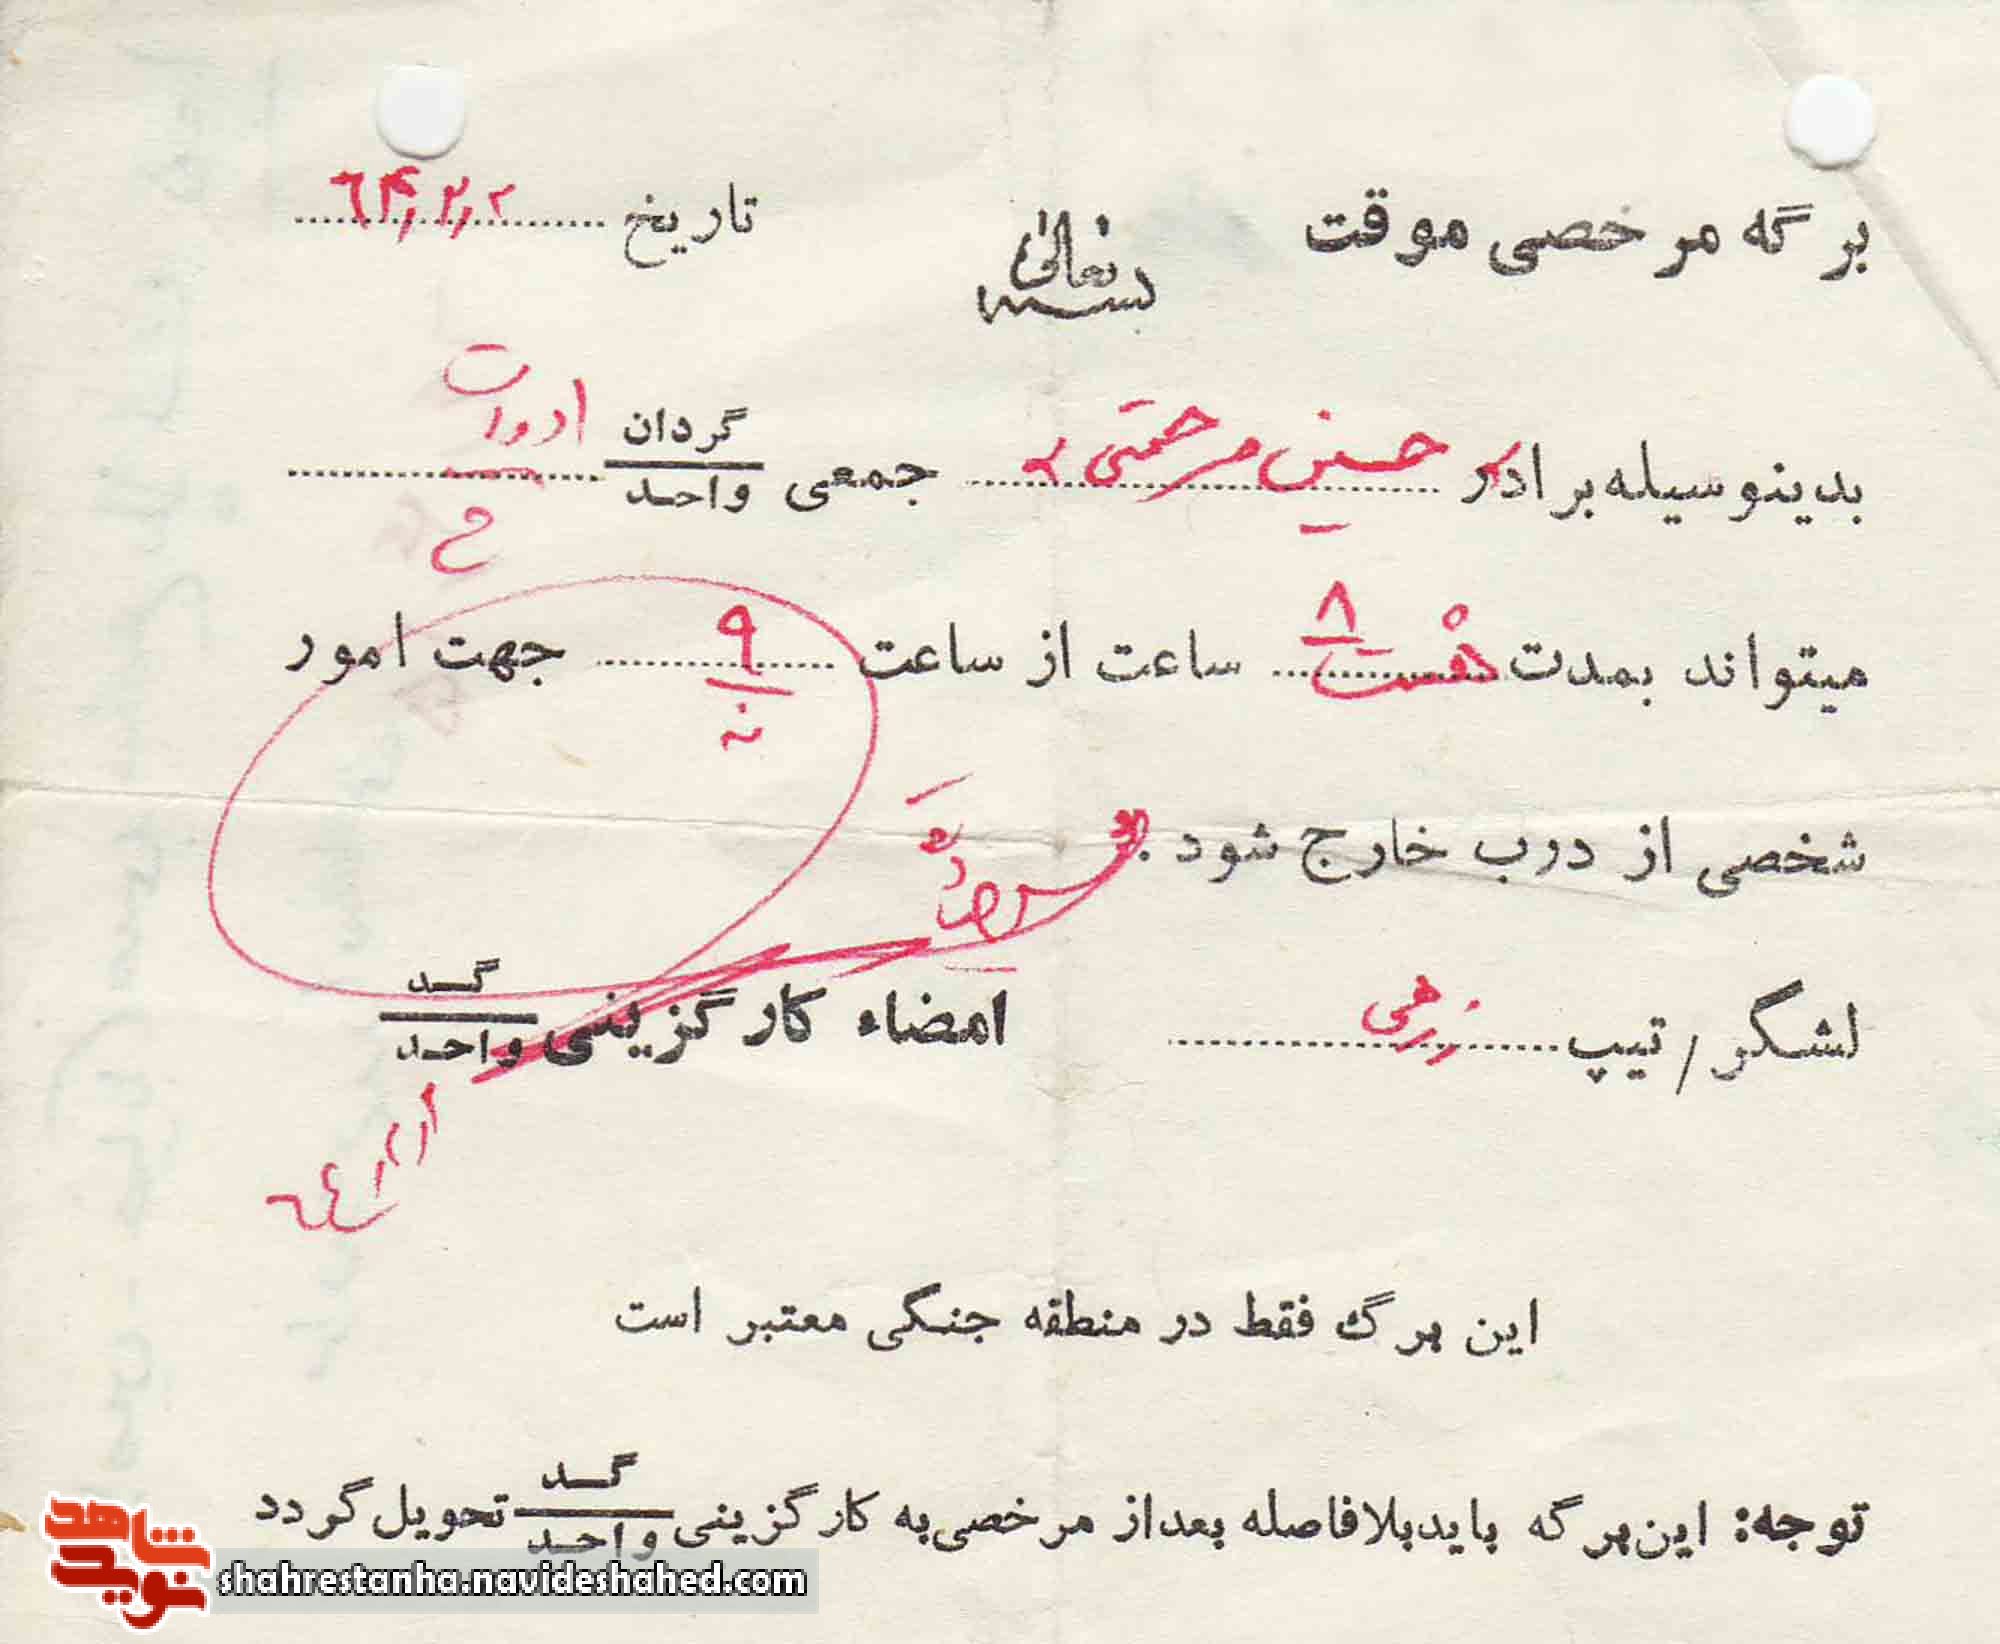 برگه مرخصی موقت
بسمه تعالی
تاریخ ۶۴/۲/۲
بدینوسیله برادر حسین مرحمتی جمعی گردان / واحد ادوات
میتواند بمدت ۸ هشت ساعت از ساعت ۹ نه جهت امور
شخصی از درب خارج شود.
لشگر / تیپ زرهی
امضاء کارگزینی گد / واحد
این برگ فقط در منطقه جنگی معتبر است
توجه: این برگه باید بلافاصله بعد از مرخصی به کارگزینی گد / واحد تحویل گردد
نوید شاهد
shahrestanha.navideshahed.com